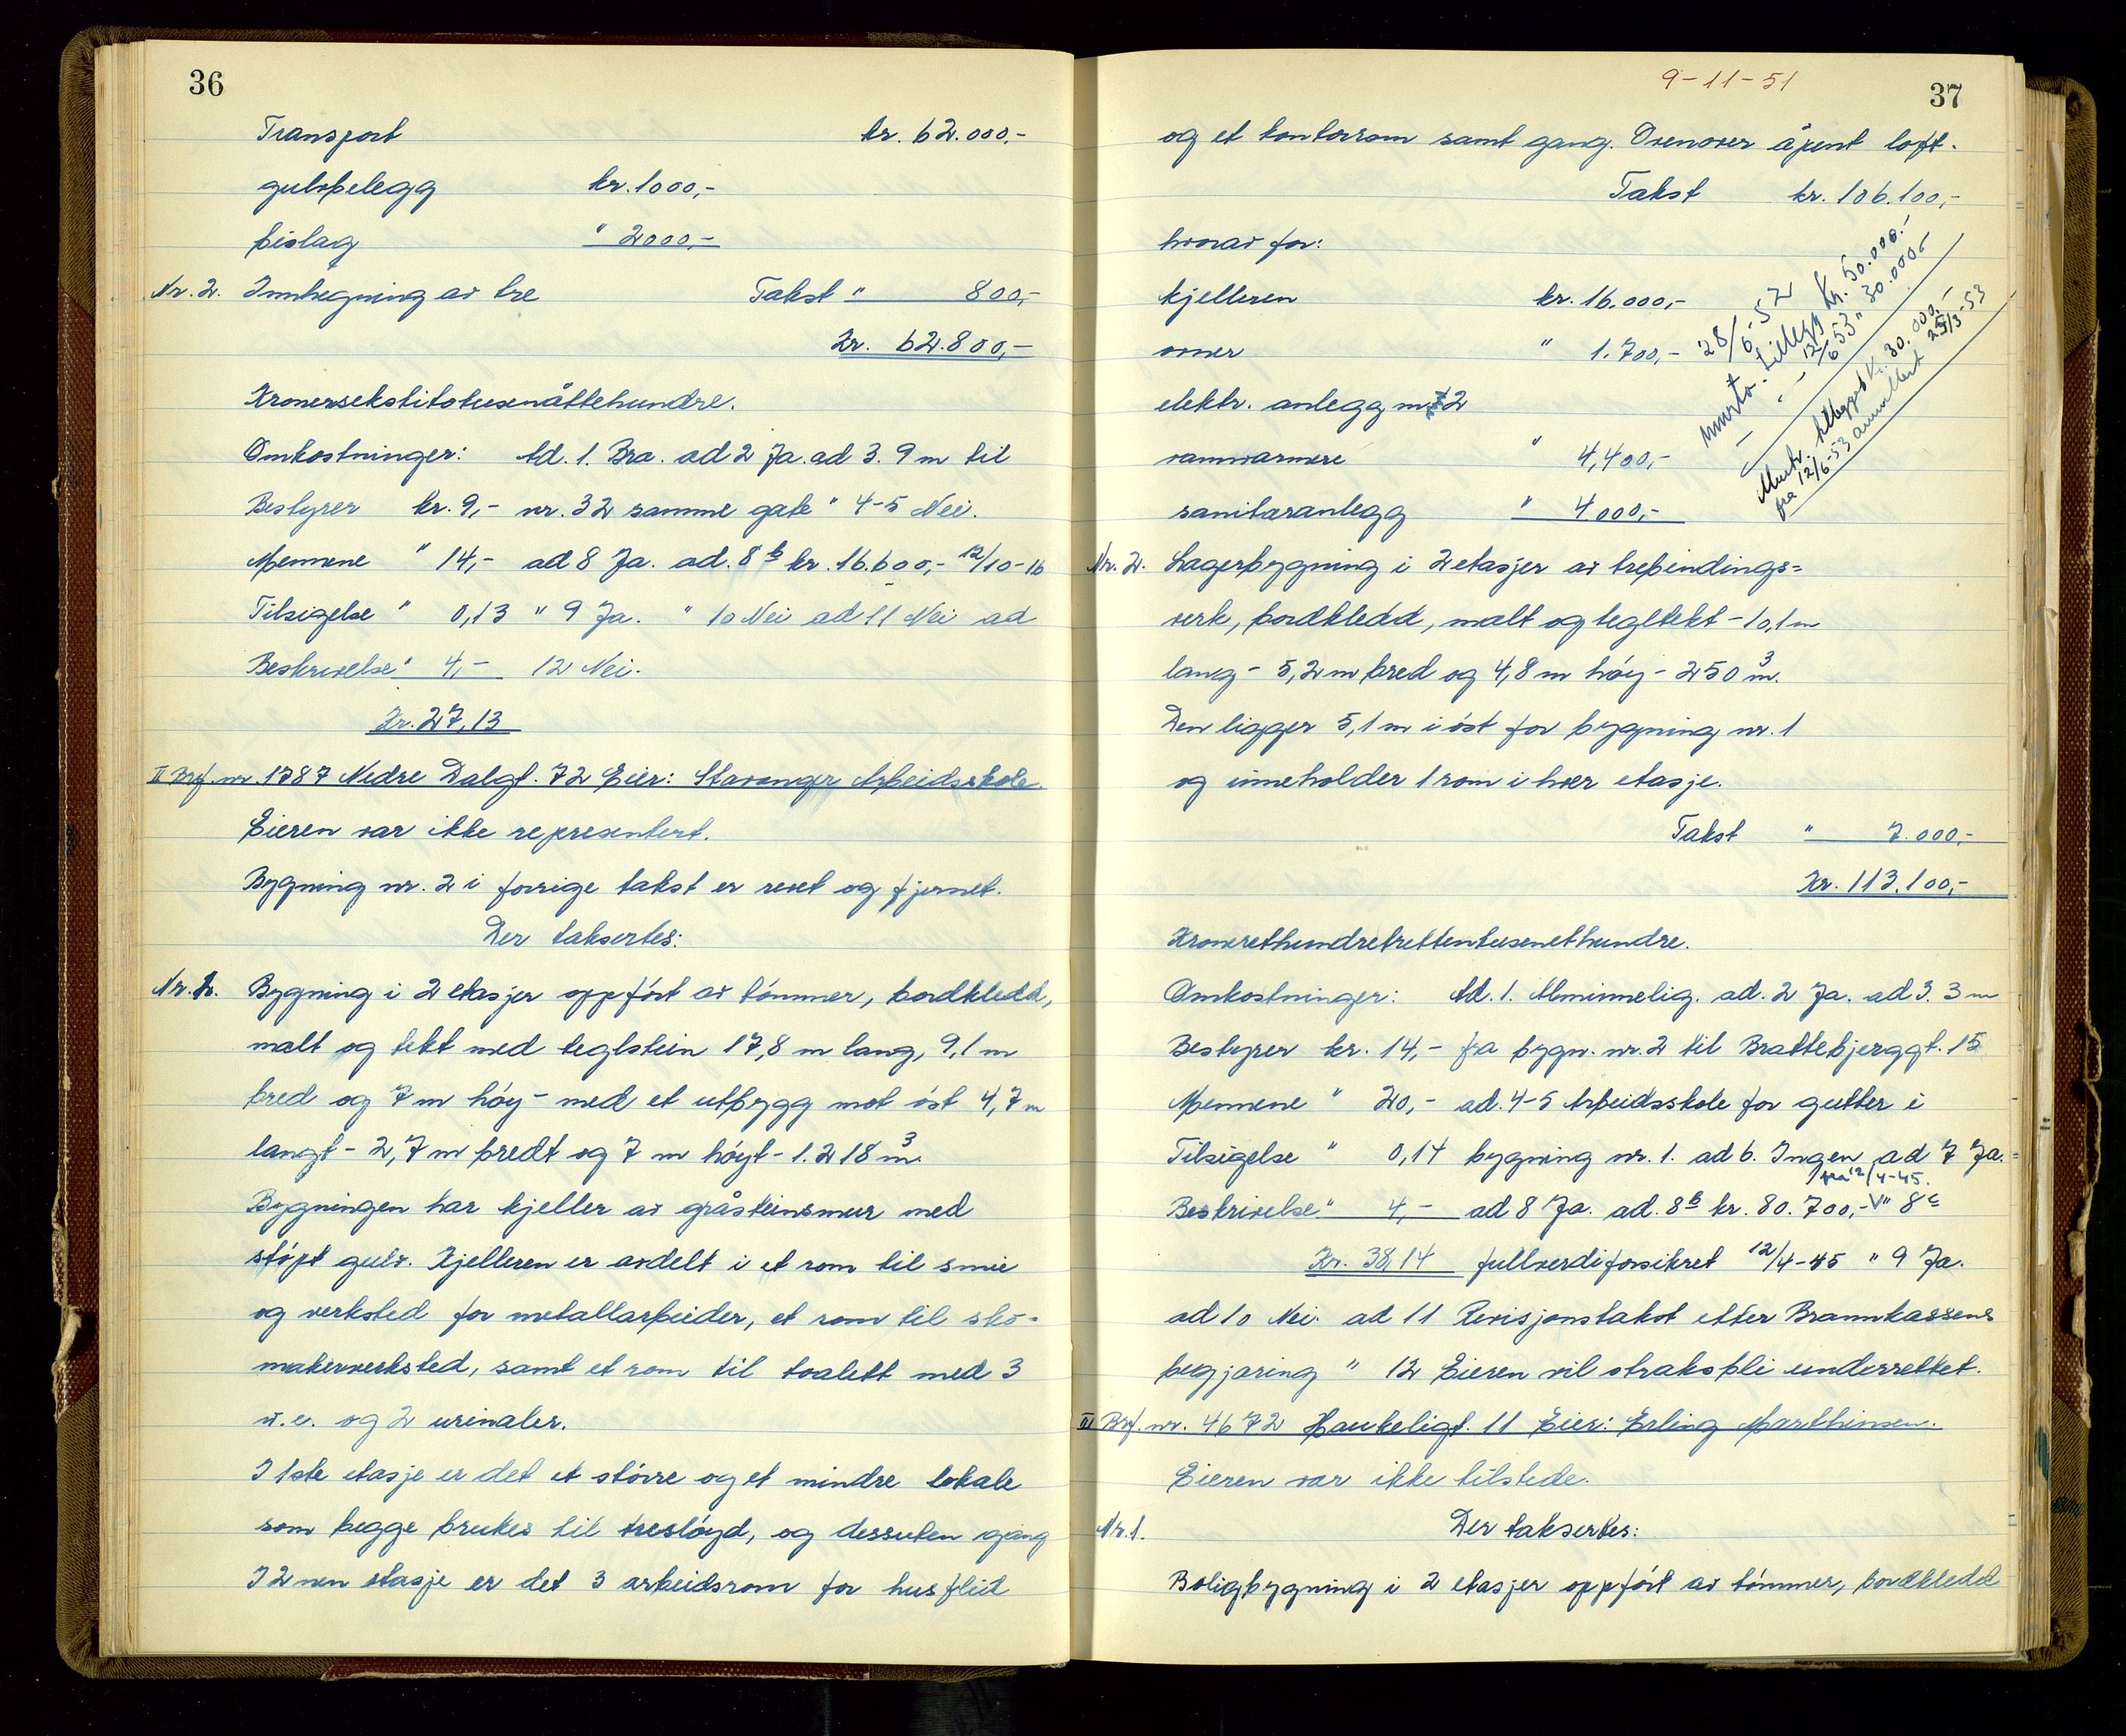 36
Transport kr. 62.000.-
gulvbelegg kr. 1000,-
bislag " 2000,-
Nr. 2. Innhegning av tre Takst " 800,-
Kr. 62.800,-
Kronersekstitotusenåttehundre.
Omkostninger: Ad. 1. Bra. ad 2 Ja. ad 3. 9 m til
Bestyrer kr. 9,- nr. 32 samme gate " 4-5 Nei.
Mennene " 14,- ad 8 Ja. ad. 8 b kr. 16.600,- 12/10-16
Tilsigelse " 0,13 " 9 Ja. " 10 Nei ad 11 Nei ad
Beskrivelse " 4,- 12 Nei.
Kr. 27,13
II Brf. nr. 1787 Nedre Dalgt. 72 Eier: Stavanger Arbeidsskole.
Eieren var ikke representert.
Bygning nr. 2 i forrige takst er revet og fjernet.
Der taksertes:
Nr. 1. Bygning i 2 etasjer oppfört av tömmer, bordkledd,
malt og tekt med teglstein 17,8 m lang, 9,1 m
bred og 7 m höy - med et utbygg mot öst 4,7 m
langt - 2,7 m bredt og 7 m höyt - 1.218 m³.
Bygningen har kjeller av gråsteinsmur med
stöpt gulv. Kjelleren er avdelt i et rom til smie
og verksted for metallarbeider, et rom til sko-
makerverksted, samt et rom til toalett med 3
w.c. og 2 urinaler.
I 1ste etasje er det et större og et mindre lokale
som begge brukes til treslöyd, og dessuten gang
I 2nen etasje er det 3 arbeidsrom for husflid
9-11-51
37
og et kontorrom samt gang. Ovenover åpent loft.
Takst kr. 106.100,-
hvorav for:
kjelleren kr. 16.000,-
ovner " 1.700,-
elektr. anlegg m 2
vannvarmere " 4,400,-
sanitæranlegg " 4000,-
28/6-52 tillegg kr. 50.000.-
12/6 53 " 30.000,-
tillegget kr. 30.000,-
fra 12/6-53 annullert 25/3-53
Nr. 2. Lagerbygning i 2 etasjer av trebindings=
verk, bordkledd, malt og tegltekt - 10,1 m
lang - 5,2 m bred og 4,8 m höy - 250 m³.
Den ligger 5,1 m i öst for bygning nr. 1
og inneholder 1 rom i hver etasje.
Takst " 7.000,-
Kr. 113.100,-
Kronerethundretrettentusenethundre.
Omkostninger: Ad. 1. Alminnelig. ad. 2 Ja. ad 3. 3 m
Bestyrer kr. 14,- fra bygn. nr. 2 til Brattebjerggt. 15
Mennene " 20,- ad. 4-5 Arbeidsskole for gutter i
Tilsigelse " 0,14 bygning nr. 1. ad 6. Ingen, ad 7 Ja.
fra 12/4-45.
Beskrivelse " 4,- ad 8 Ja. ad. 8 b kr. 80.700,- " 8 c
Kr. 38,14 fullverdiforsikret 12/4-45 " 9 Ja.
ad 10 Nei. ad 11 Revisjonstakst etter Brannkassens
begjæring " 12 Eieren vil straks bli underrettet.
III Brf. nr. 4672 Haukeligt. 11 Eier: Erling Marthinsen.
Eieren var ikke tilstede.
Nr. 1. Der taksertes:
Boligbygning i 2 etasjer oppfört av tömmer, bordkledd